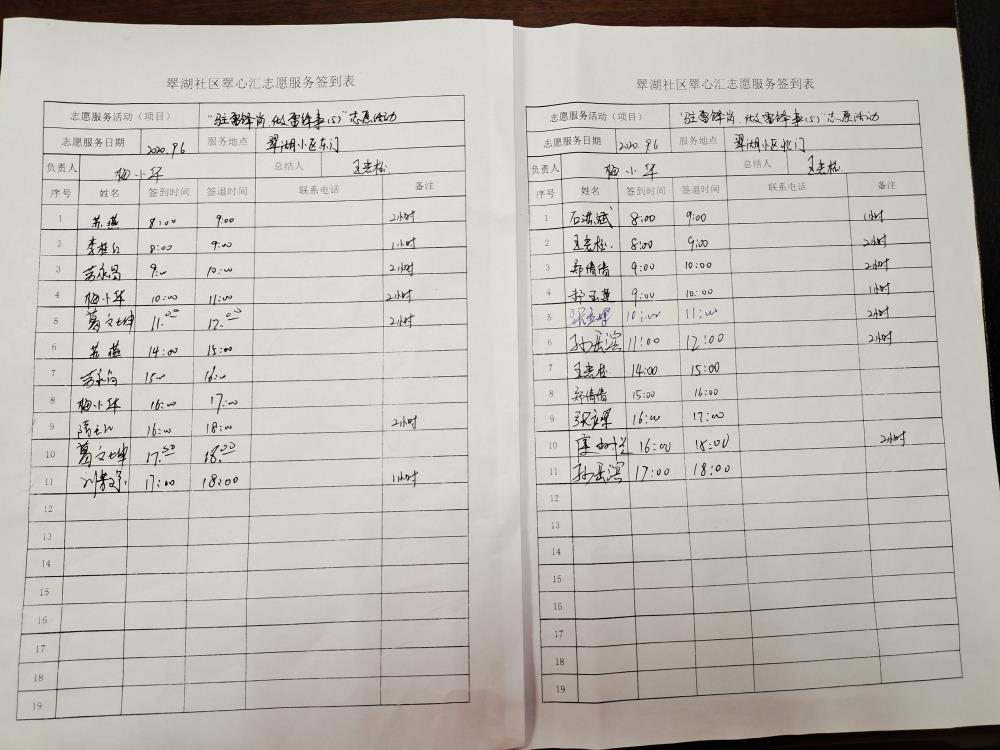 翠湖社区翠心汇志愿服务签到表
志愿服务活动（项目） "驻雷锋岗，做雷锋事(5)"志愿活动
志愿服务日期 2020.9.6 服务地点 翠湖小区东门
负责人 梅小华 总结人 王孝松
序号 姓名 签到时间 签退时间 联系电话 备注
1 苏燕 8:00 9:00 2小时
2 李桂红 8:00 9:00 1小时
3 苏永昌 9:00 10:00 2小时
4 梅小华 10:00 11:00 2小时
5 葛文坤 11:00 12:00 2小时
6 苏燕 14:00 15:00
7 15:00 16:00
8 梅小华 16:00 17:00
9 16:00 18:00 2小时
10 葛文坤 17:00 18:00
11 17:00 18:00 1小时
12
13
14
15
16
17
18
19
翠湖社区翠心汇志愿服务签到表
志愿服务活动（项目） "驻雷锋岗，做雷锋事(5)"志愿活动
志愿服务日期 2020.9.6 服务地点 翠湖小区北门
负责人 梅小华 总结人 王孝松
序号 姓名 签到时间 签退时间 联系电话 备注
1 石洪斌 8:00 9:00 1小时
2 王孝松 8:00 9:00 2小时
3 郑倩倩 9:00 10:00 2小时
4 郝玉莲 9:00 10:00 1小时
5 10:00 11:00 2小时
6 孙岳滨 11:00 12:00 2小时
7 王孝松 14:00 15:00
8 郑倩倩 15:00 16:00
9 16:00 17:00
10 16:00 18:00 2小时
11 孙岳滨 17:00 18:00
12
13
14
15
16
17
18
19